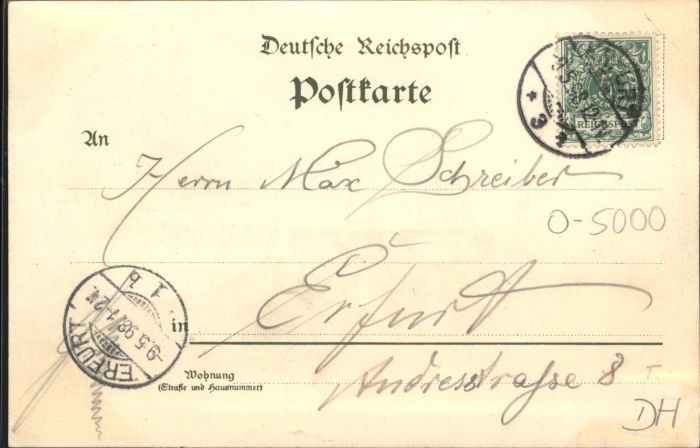 Deutsche Reichspost
Postkarte
REICHSPOST
An
Herrn Max Schreiber
O-5000
Erfurt
in
ERFURT
9.5.98.1-2N.
1 b
Wohnung
(Straße und Hausnummer)
Andreasstrasse 8 I
DH